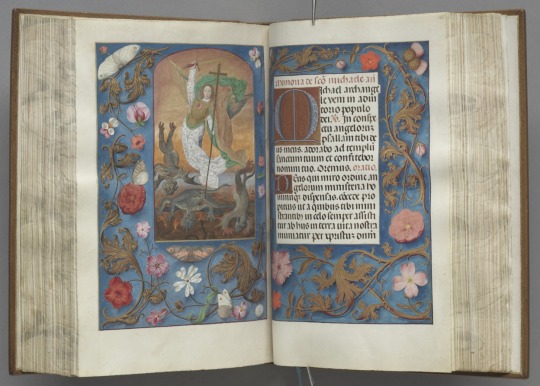 Memoria de sco michaele ar
Michael archange
le veni in adiu
torio populo
dei. In conspe
ctu angelorum
psallam tibi de
us meus. adorabo ad templum
sanctum tuum et confitebor
nomini tuo. Oremus. oratio.
Deus qui miro ordine an
gelorum ministeria ho
minumque dispensas. concede propi
tius ut a quibus tibi mini
strantibus in celo semper assisti
tur ab his in terra vita nostra
muniatur per xpristum dnm